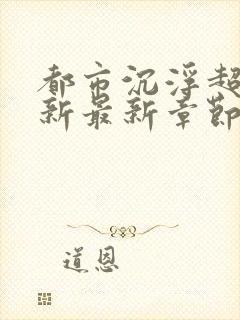 都市沉浮超
新最新章节
道恩